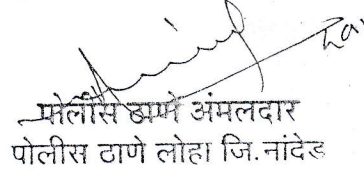 पोलीस ठाणे अंमलदार
पोलीस ठाणे लोहा जि.नांदेड